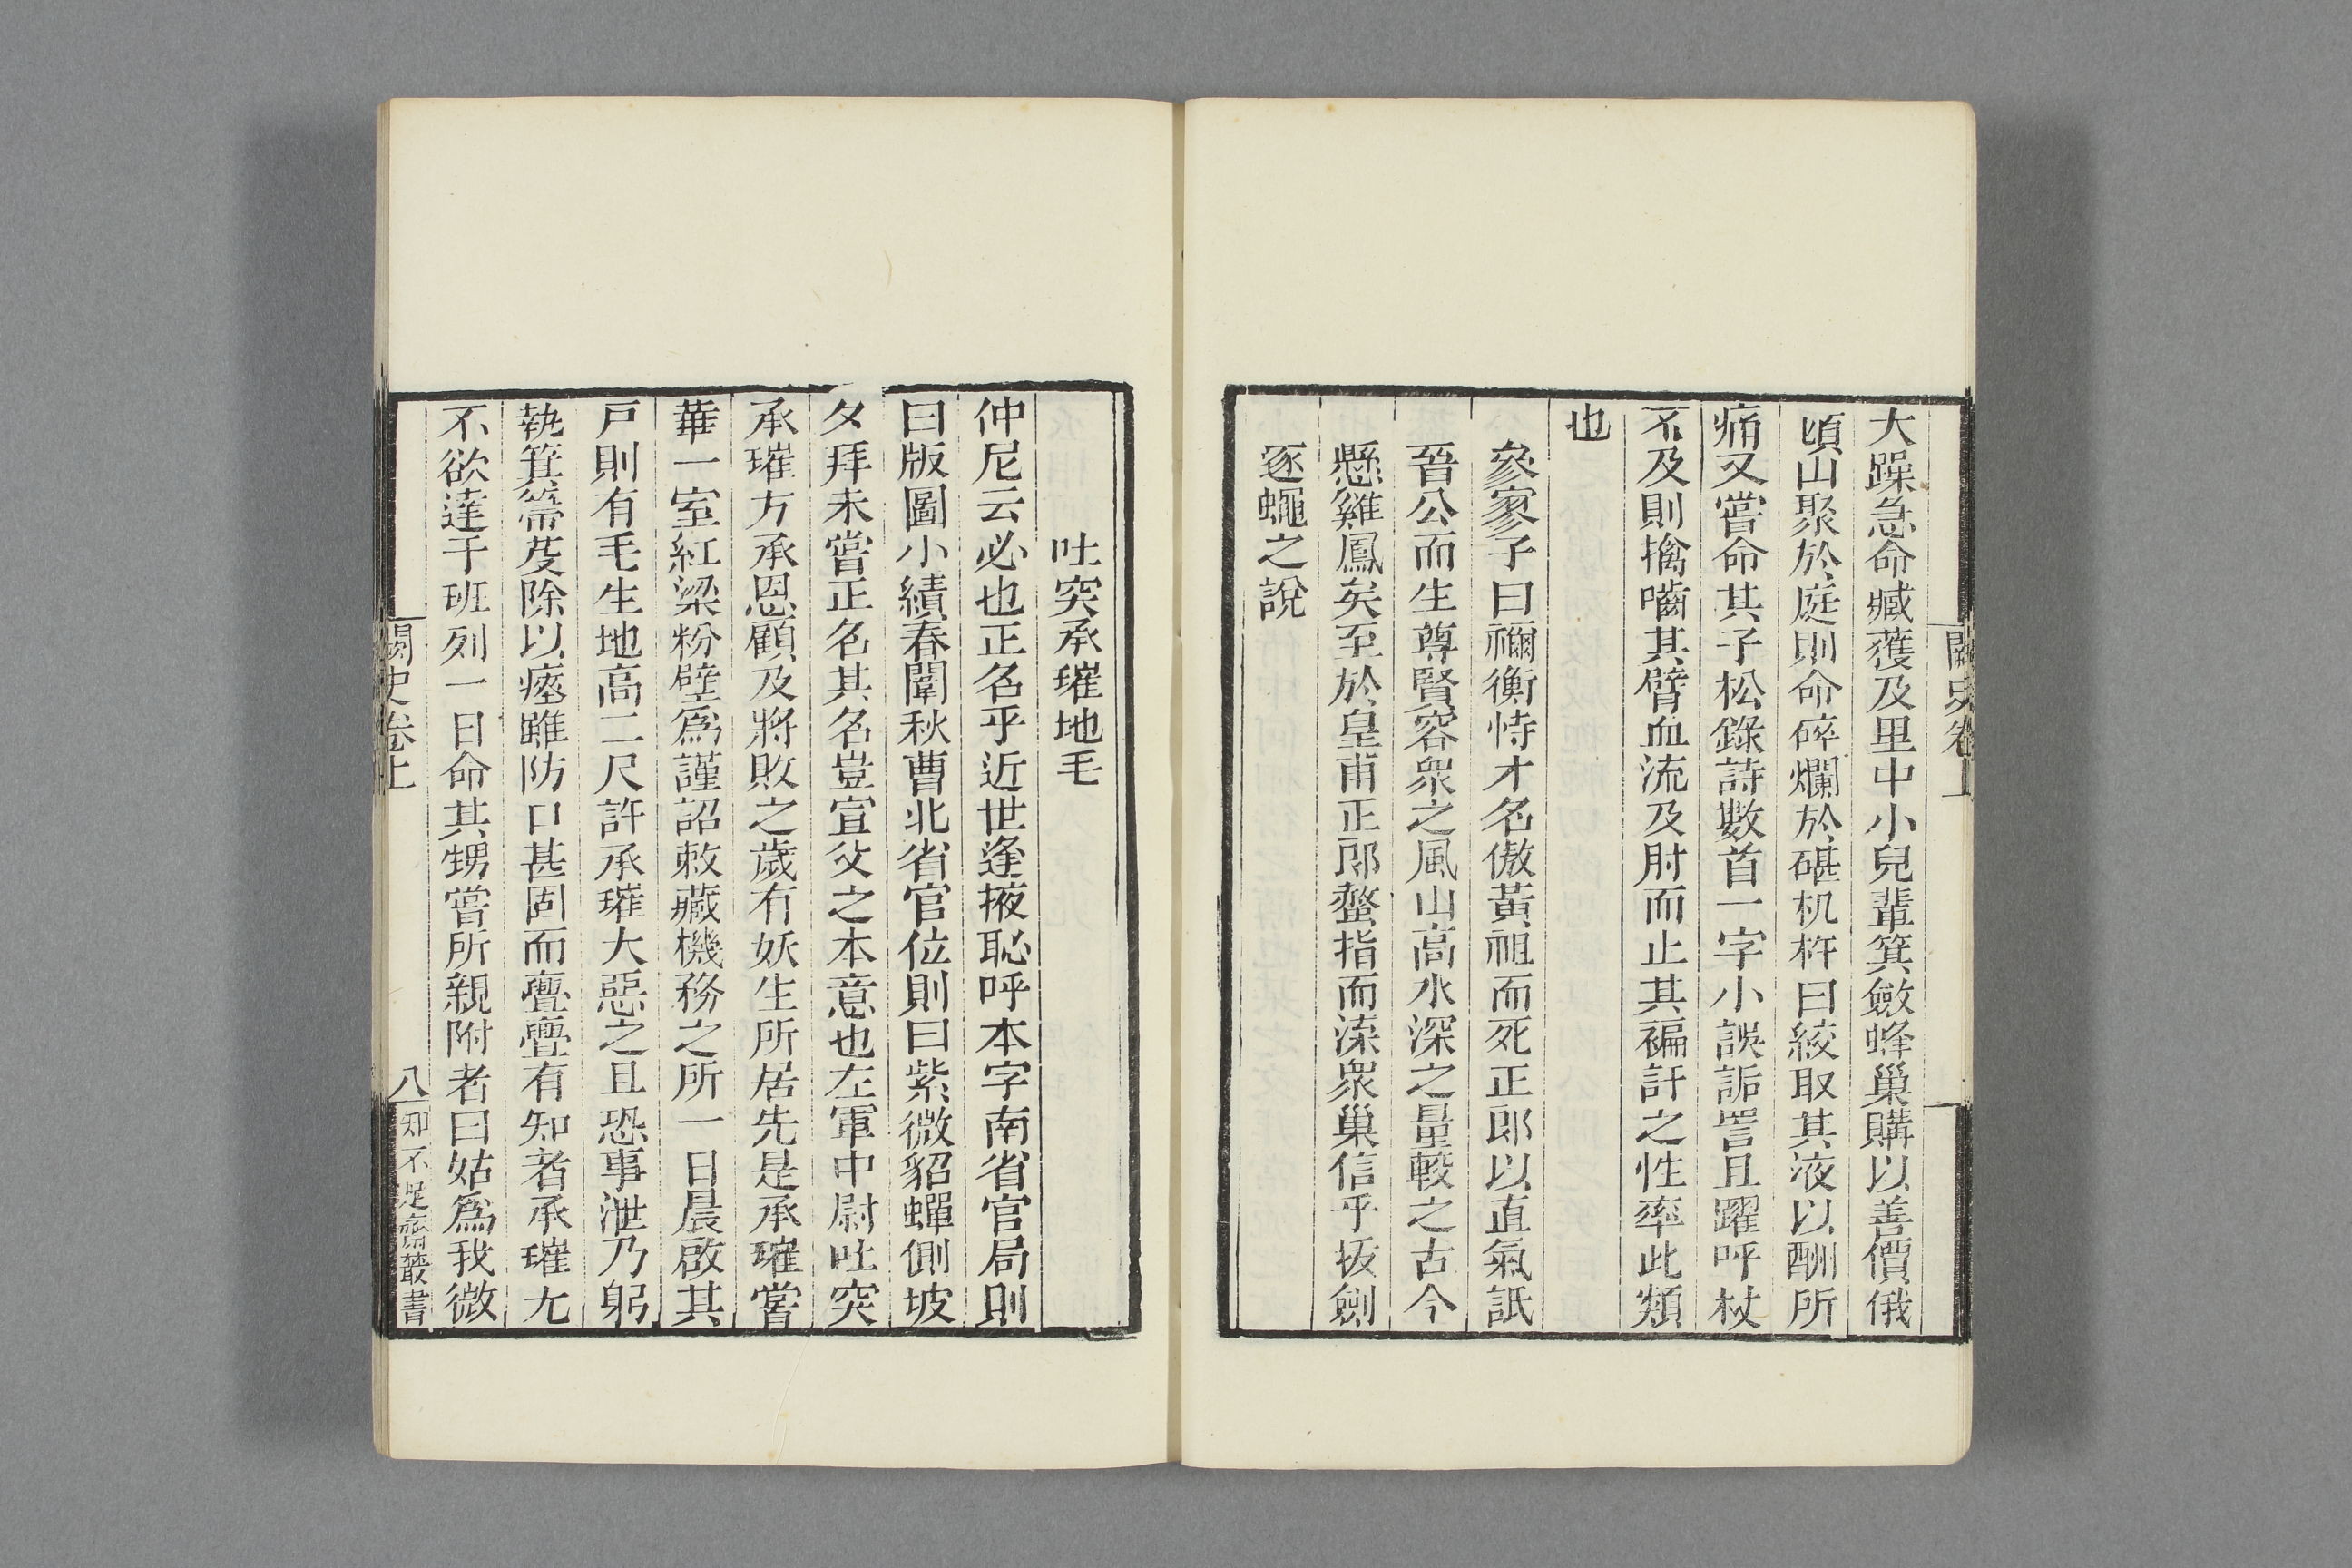 闕史卷上
大躁急命臧獲及里中小兒輩箕斂蜂巢購以善價俄
頃山聚於庭則命碎爛於碪机杵曰絞取其液以酬所
痛又嘗命其子松錄詩數首一字小誤詬詈且躍呼杖
不及則擒嚙其臂血流及肘而止其褊訐之性率此類
也
參寥子曰禰衡恃才名傲黃祖而死正郎以直氣詆
晉公而生尊賢容衆之風山高水深之量較之古今
懸雞鳳矣至於皇甫正郎螫指而溙衆巢信乎拔劍
逐蠅之說
吐突承璀地毛
仲尼云必也正名乎近世逢掖恥呼本字南省官局則
曰版圖小績春闈秋曹北省官位則曰紫微貂蟬側坡
夂拜未嘗正名其名豈宣父之本意也左軍中尉吐突
承璀方承恩顧及將敗之歲有妖生所居先是承璀嘗
華一室紅梁粉壁爲謹詔敕藏機務之所一日晨啟其
戸則有毛生地高二尺許承璀大惡之且恐事泄乃躬
執箕篲芟除以瘞雖防口甚固而亹亹有知者承璀尢
不欲達于班列一日命其甥嘗所親附者曰姑爲我微
闕史卷上
八
知不足齋叢書